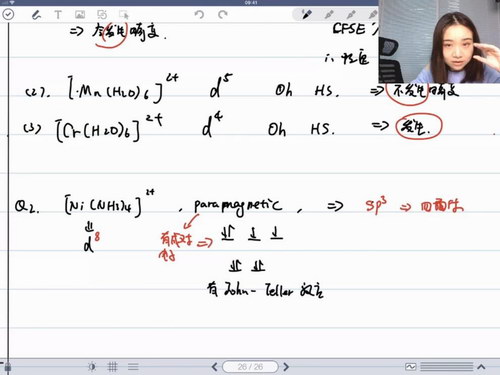 09:41
⇒ 会发生畸变
CFSE
(2). [Mn(H2O)6]2+ d5 Oh HS. ⇒ 不发生畸变
(3) [Cr(H2O)6]2+ d4 Oh HS. ⇒ 发生.
Q2. [Ni(NH3)4]2+ , paramagnetic , ⇒ sp3 ⇒ 四面体
d8
有 John-Teller 效应
26 / 26